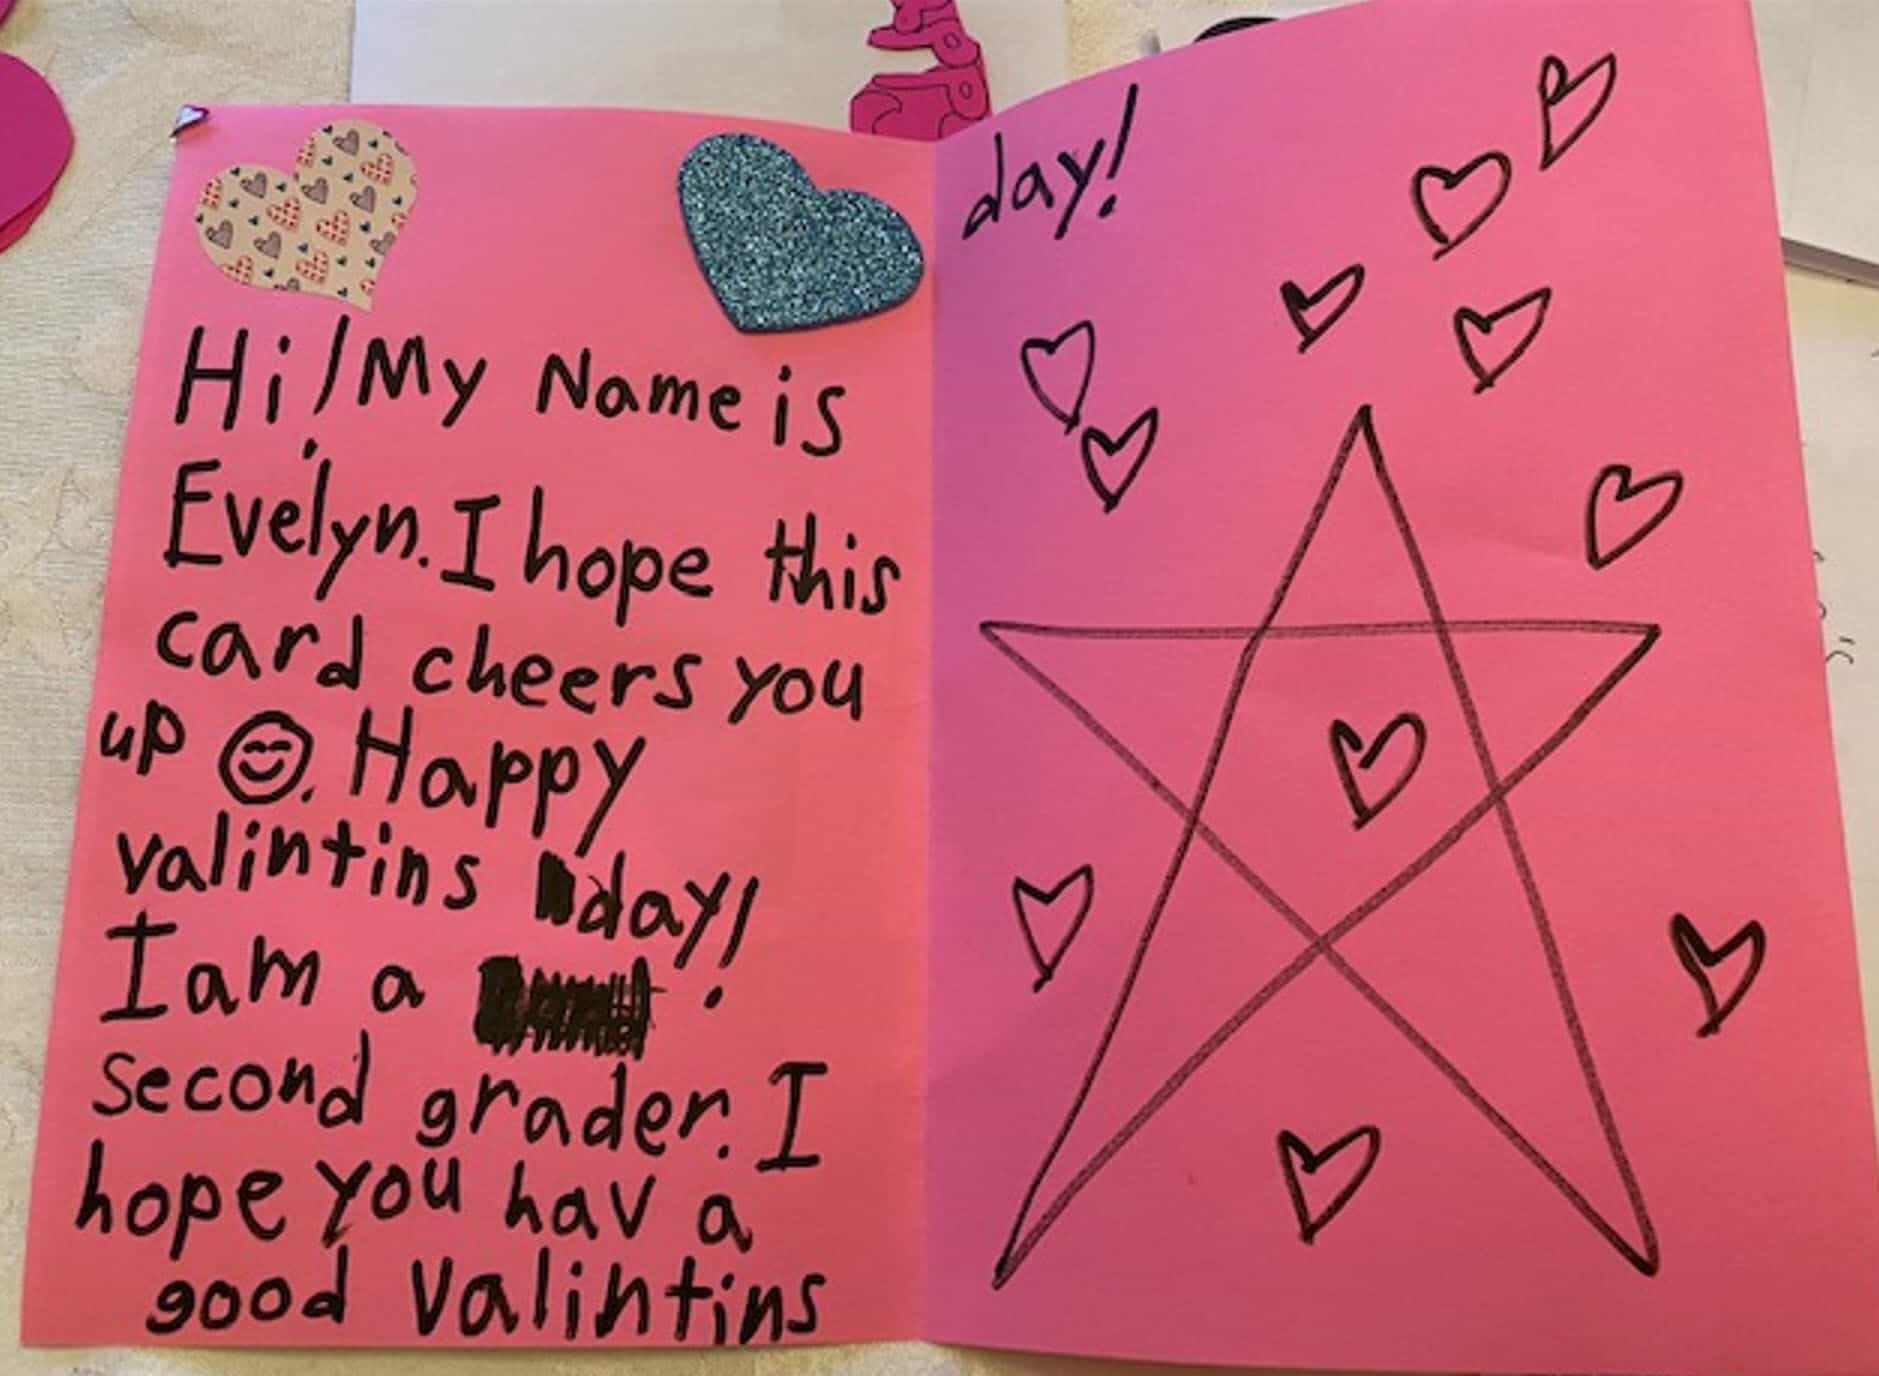 Hi! My Name is
Evelyn. I hope this
card cheers you
up 😊. Happy
valintins day!
I am a
second grader. I
hope you hav a
good valintins
day!